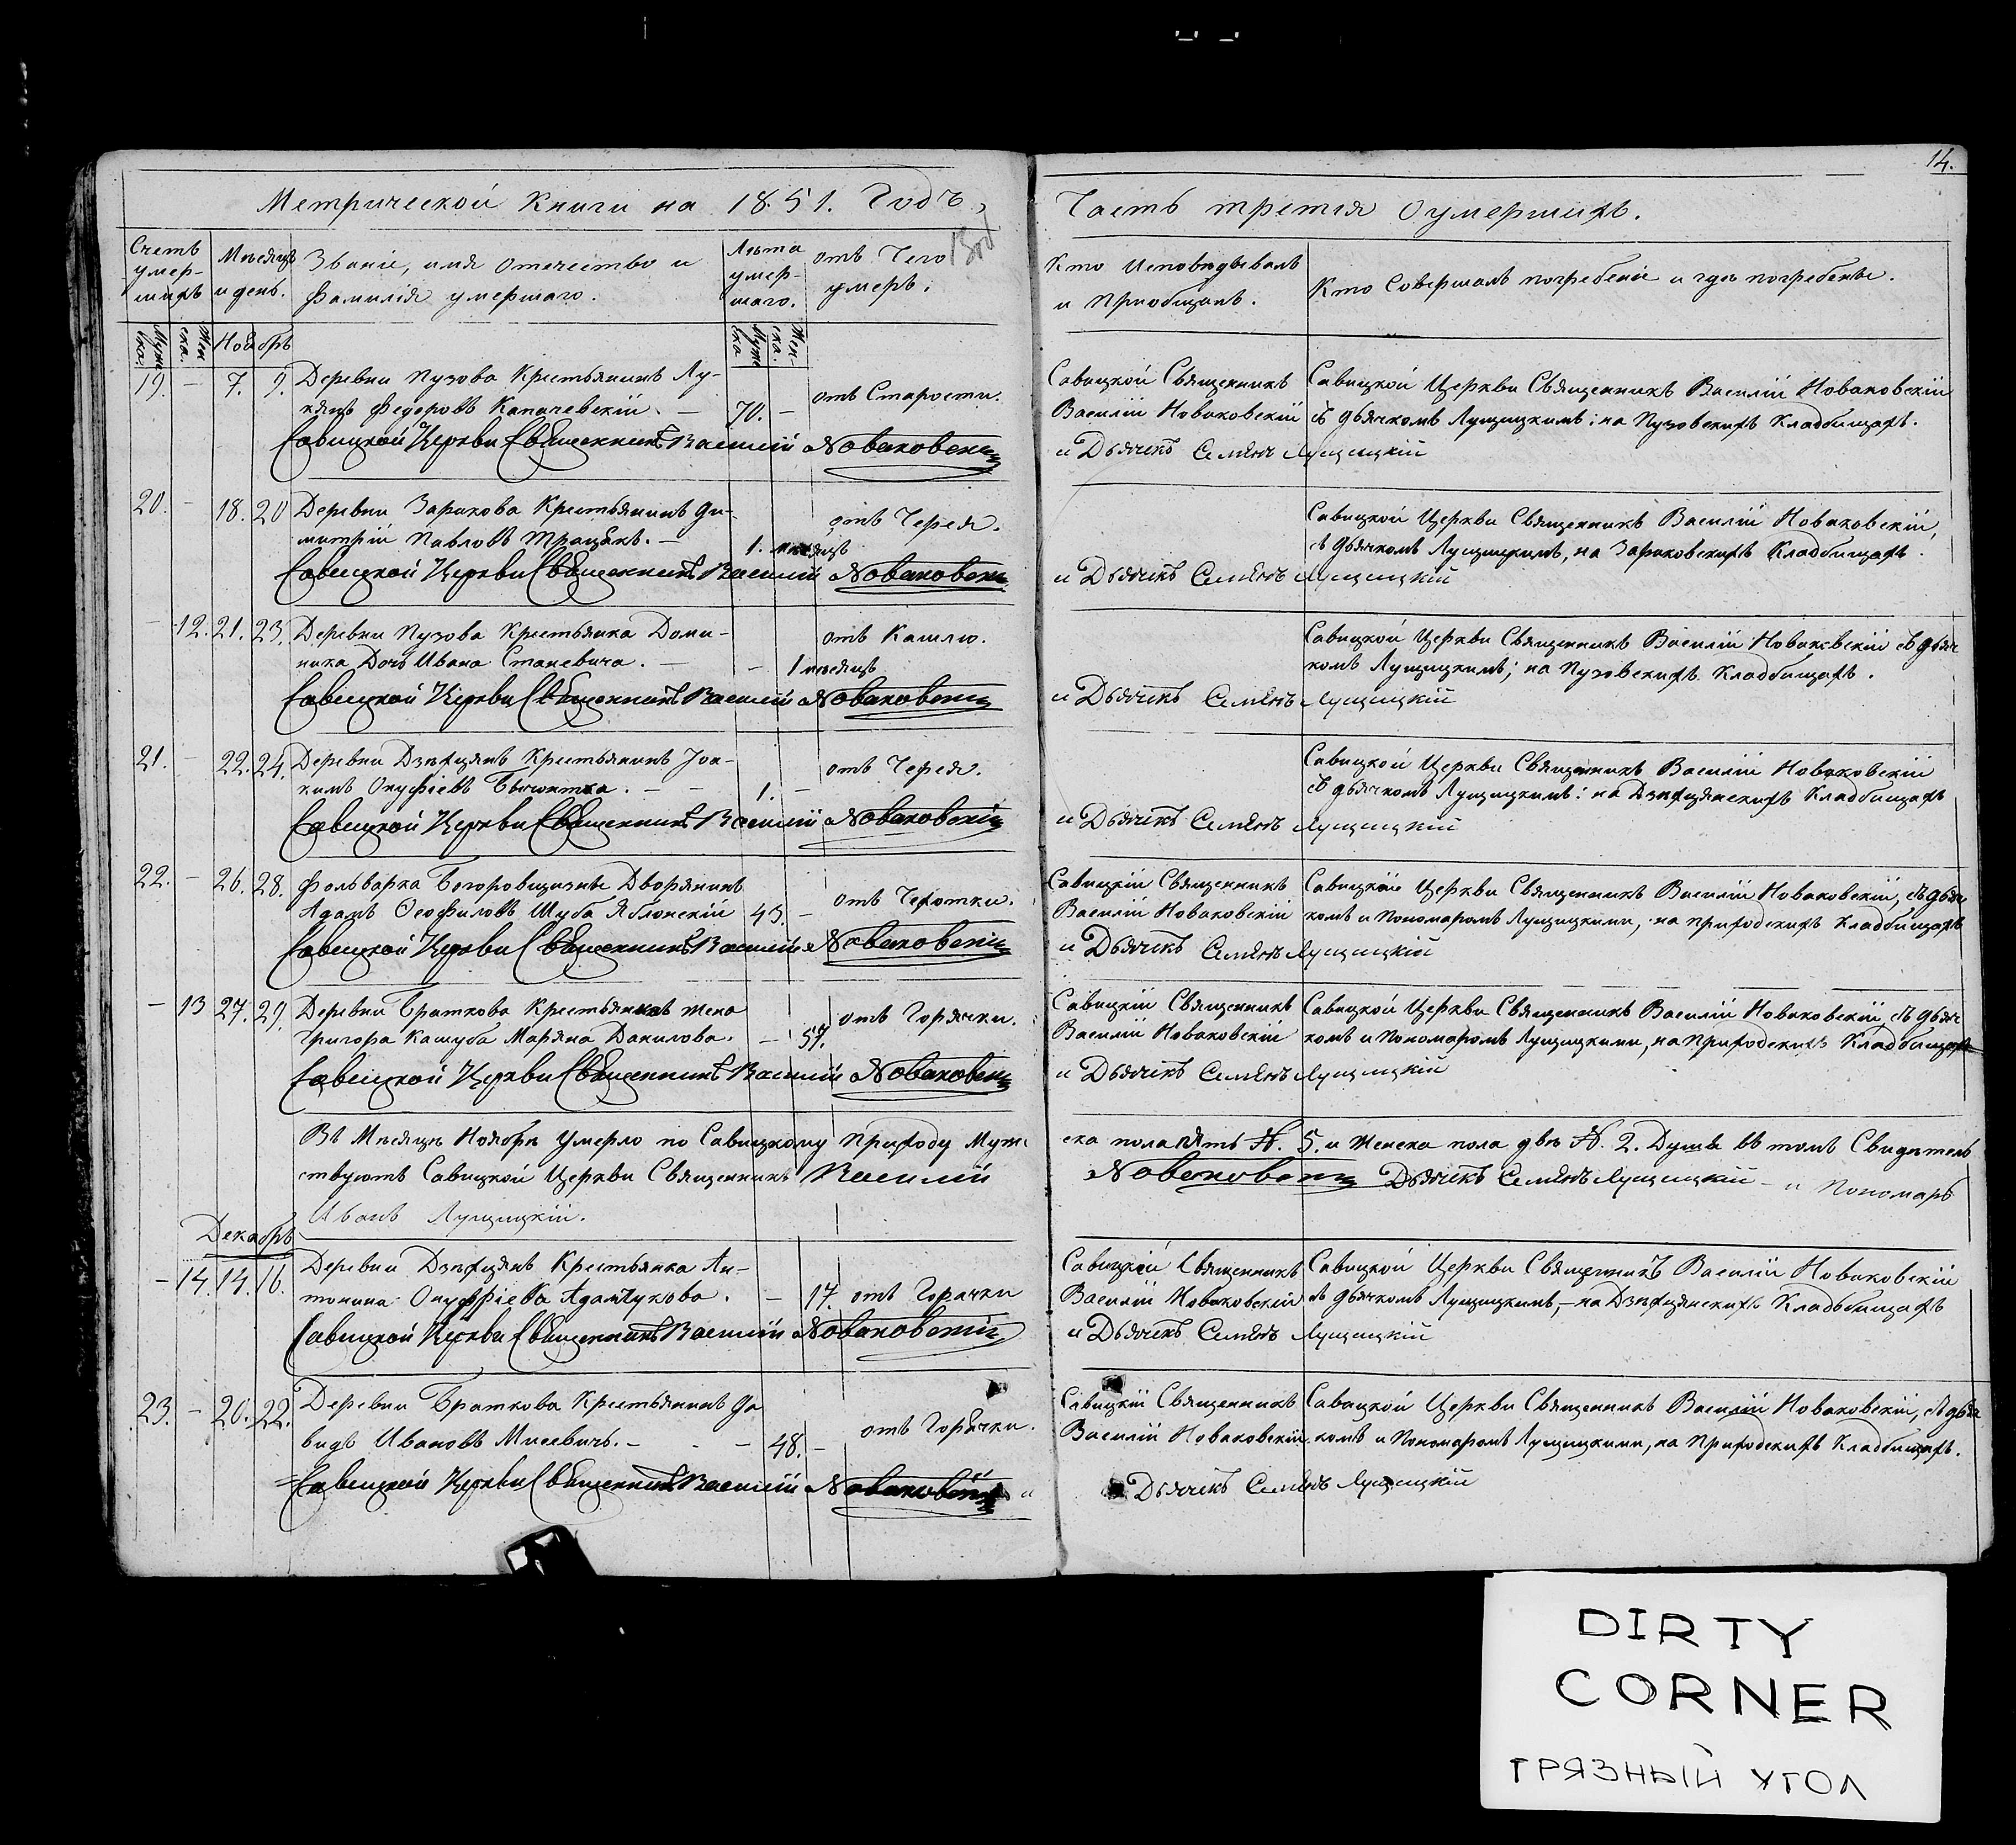 14.
Метрической Книги на 1851. Годъ,
Часть третія О умершихъ.
Счетъ умер-шихъ
Мѣсяцъ и день.
Званіе, имя отчество и фамилія умершаго.
Лѣта умер-шаго.
отъ Чего умеръ.
Кто Исповѣдывалъ и Пріобщалъ.
Кто Совершалъ погребеніе и гдѣ погребены.
Муже ска.
Жен ска.
Ноябрь
Муже ска
Жен-ска.
19. – 7. 9. Деревни Пузова Крестьянинъ Лу-
кянъ Федоровъ Капачевскій. – 70. – отъ Старости.
Савицкой Церкви Священникъ Василій Новаковскій
Савицкой Священникъ
Василій Новаковскій
и Дьячекъ Семенъ Лущицкій
Савицкой Церкви Священникъ Василій Новаковскій
съ дьячкомъ Лущицкимъ: на Пузовскихъ Кладбищахъ.
20. – 18. 20 Деревни Зарикова Крестьянинъ Ди-
митрій Павловъ Трацэкъ. – 1. мѣсяцъ отъ Черея.
Савицкой Церкви Священникъ Василій Новаковскій
и Дьячекъ Семенъ Лущицкій
Савицкой Церкви Священникъ Василій Новаковскій,
съ дьячкомъ Лущицкимъ, на Зариковскихъ Кладбищахъ.
– 12. 21. 23. Деревни Пузова Крестьянка Доми-
ника Дочь Ивана Станевича. – – 1 мѣсяцъ отъ Кашлю.
Савицкой Церкви Священникъ Василій Новаковскій
и Дьячекъ Семенъ Лущицкій
Савицкой Церкви Священникъ Василій Новаковскій съ дьяч
комъ Лущицкимъ; на Пузовскихъ Кладбищахъ.
21. – 22. 24. Деревни Дзѣхцянъ Крестьянинъ Іоа-
кимъ Онуфріевъ – – 1. – отъ Черея.
Савицкой Церкви Священникъ Василій Новаковскій
и Дьячекъ Семенъ Лущицкій
Савицкой Церкви Священникъ Василій Новаковскій
съ дьячкомъ Лущицкимъ: на Дзѣхцянскихъ Кладбищахъ
22. – 26. 28. Фольварка Богоровщизны Дворянинъ
Адамъ Ѳеофиловъ Шуба Яблонскій 43. – отъ Чехотки.
Савицкой Церкви Священникъ Василій Новаковскій
Савицкій Священникъ
Василій Новаковскій
и Дьячекъ Семенъ Лущицкій
Савицкой Церкви Священникъ Василій Новаковскій, съ дьяч
комъ и Пономаромъ Лущицкими, на приходскихъ Кладбищахъ
– 13 27. 29. Деревни Браткова Крестьянка жена
Григора Кашуба Маряна Данилова. – 57. отъ Горячки.
Савицкой Церкви Священникъ Василій Новаковскій
Савицкій Священникъ
Василій Новаковскій
и Дьячекъ Семенъ Лущицкій
Савицкой Церкви Священникъ Василій Новаковскій, съ дьяч
комъ и Пономаромъ Лущицкими, на Приходскихъ Кладбищахъ
Въ Мѣсяцѣ Ноябрѣ Умерло по Савицкому Приходу Муже
ска пола пять №. 5. и Женска пола двѣ №. 2. Душъ въ томъ Свидѣтель
ствуютъ Савицкой Церкви Священникъ Василій
Новаковскій Дьячекъ Семенъ Лущицкій – и Пономарь
Иванъ Лущицкій.
Декабрь
– 14. 14. 16. Деревни Дзѣхцянъ Крестьянка Ан-
тонина Онуффріева Адамчукова. – 17. отъ Горачки
Савицкой Церкви Священникъ Василій Новаковскій
Савицкій Священникъ
Василій Новаковскій
и Дьячекъ Семенъ Лущицкій
Савицкой Церкви Священникъ Василій Новаковскій
съ дьячкомъ Лущицкимъ, – на Дзѣхцянскихъ Кладьбищахъ
23. – 20. 22. Деревни Браткова Крестьянинъ Да
видъ Ивановъ Мисевичъ. – – – 48. – отъ Горячки.
Савицкой Церкви Священникъ Василій Новаковскій и
Савицкій Священникъ
Василій Новаковскій
Дьячекъ Семенъ Лущицкій
Савицкой Церкви Священникъ Василій Новаковскій, съ дьяч
комъ и Пономаромъ Лущицкими, на Приходскихъ Кладбищахъ.
DIRTY
CORNER
ГРЯЗНЫЙ УГОЛ